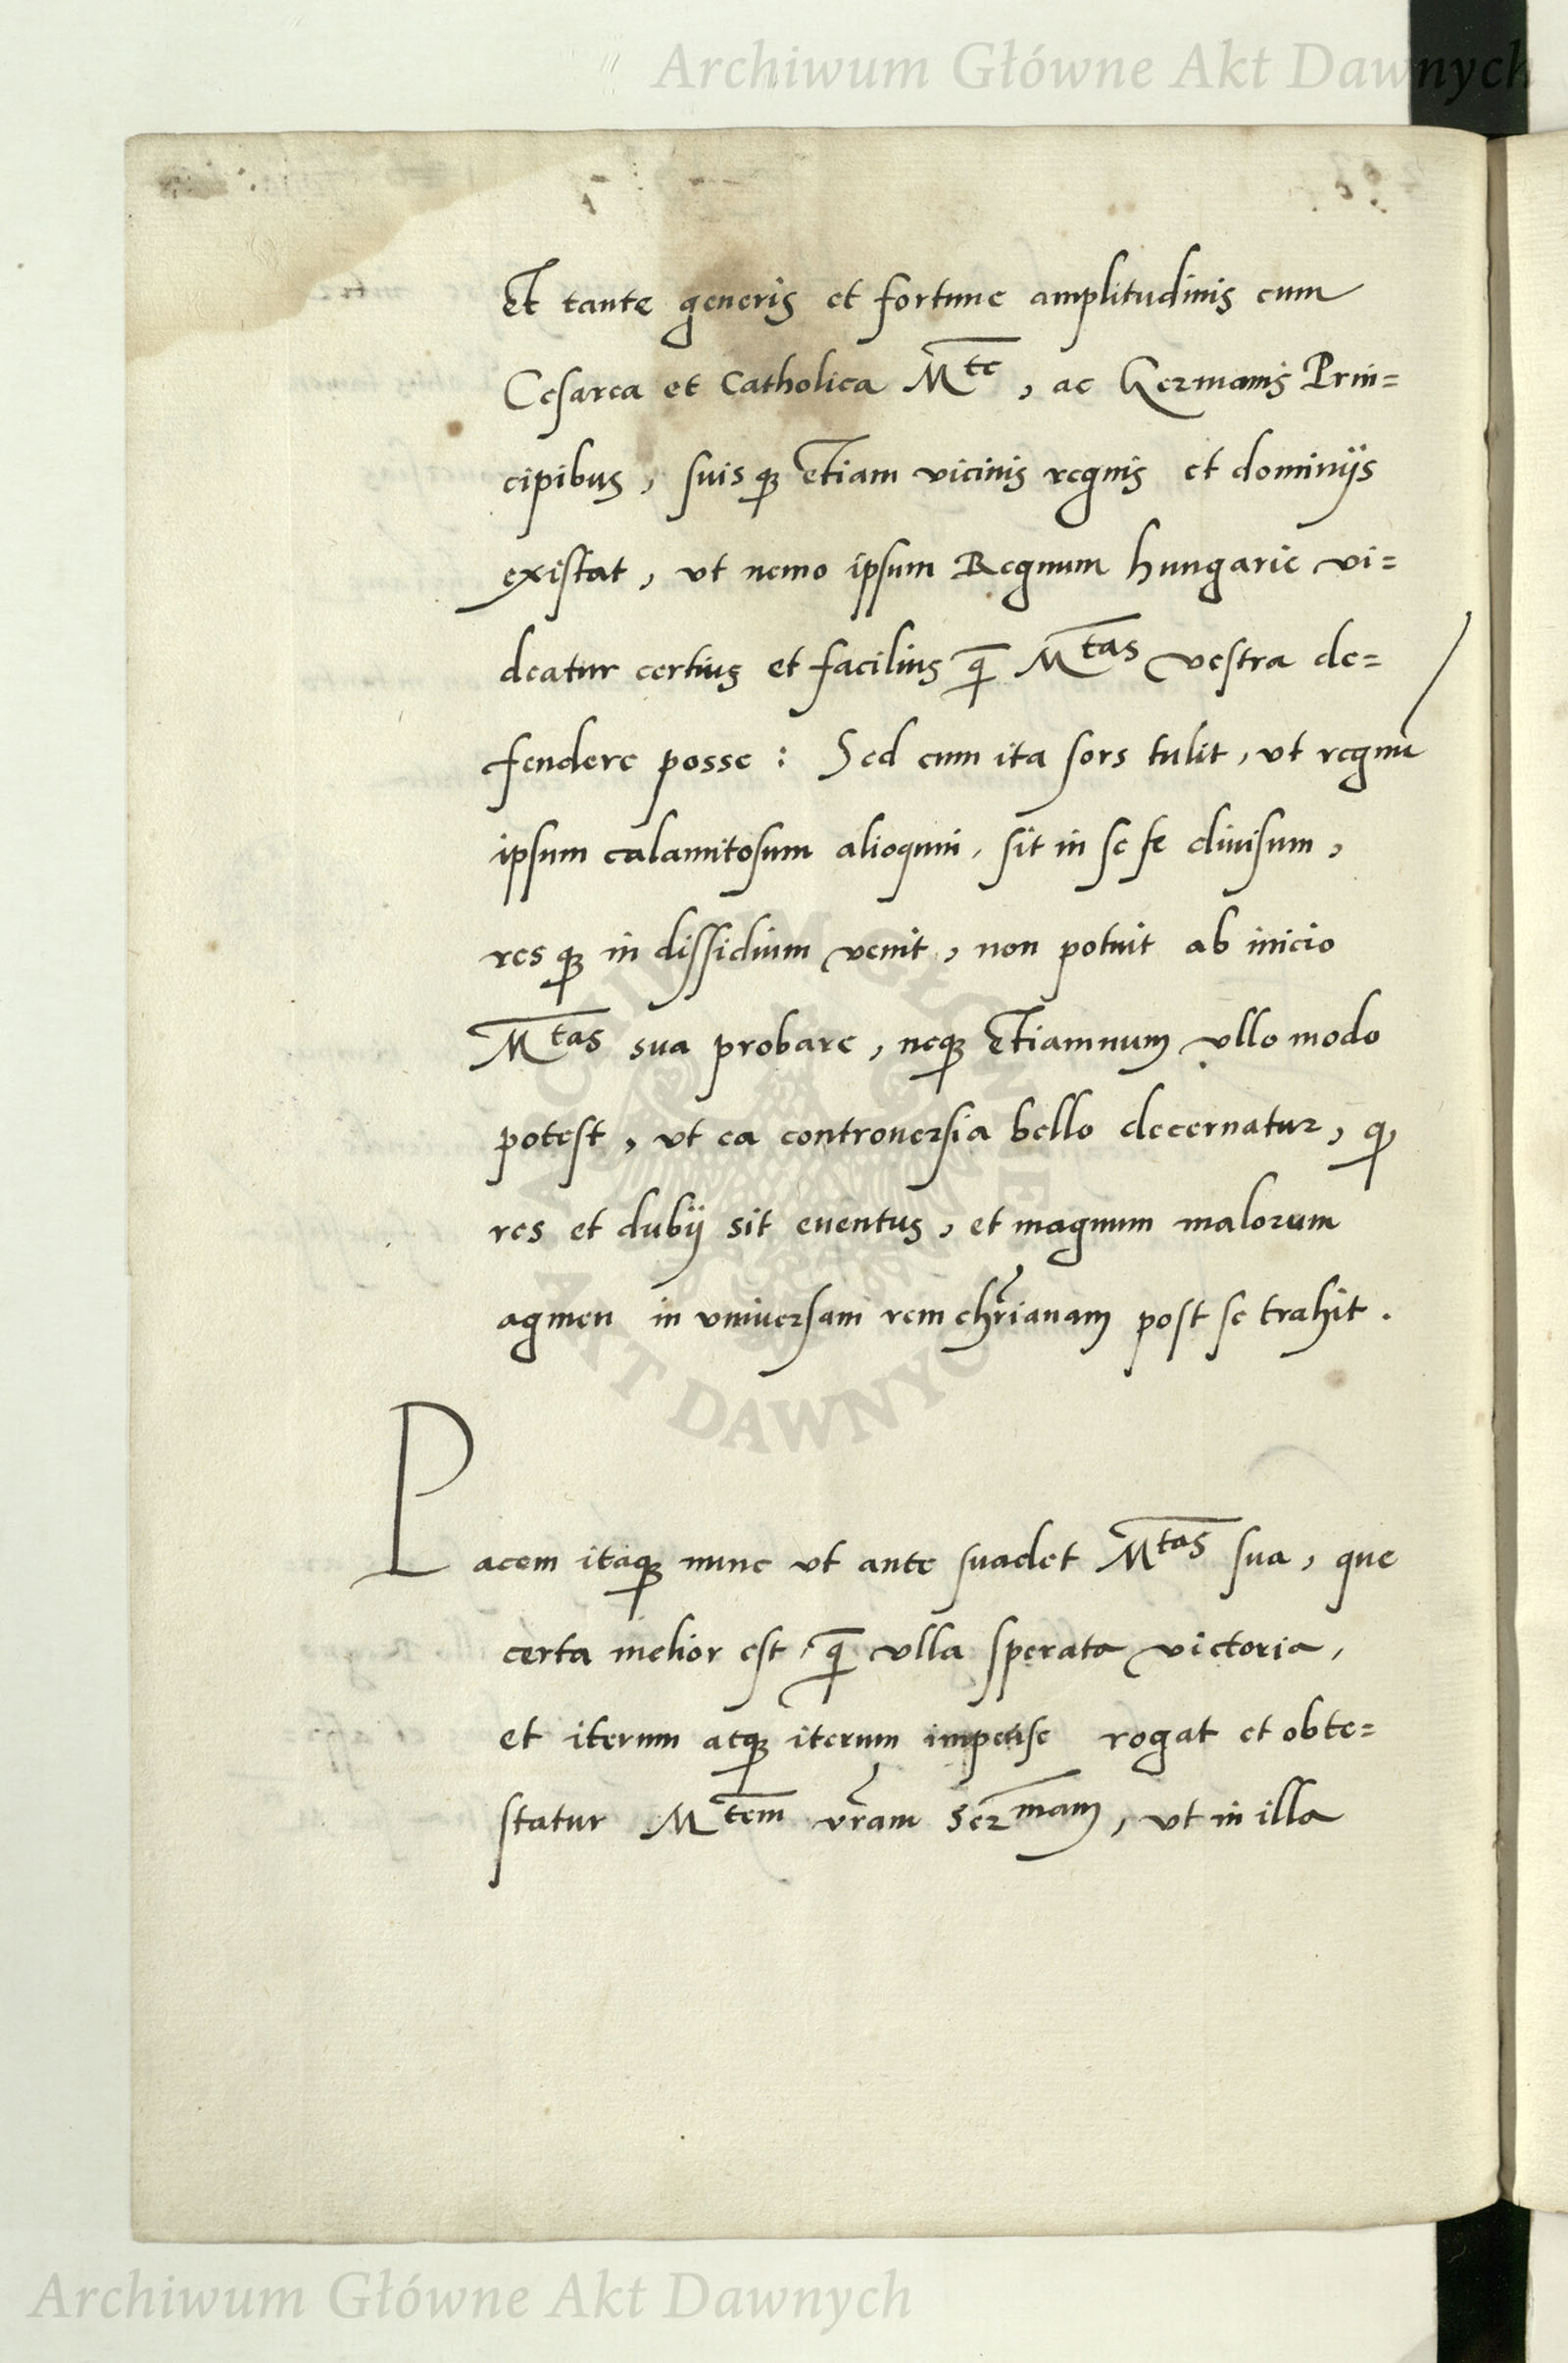 Archiwum Główne Akt Dawnych
Et tante generis et fortune amplitudinis cum
Cesarea et Catholica M^te, ac Germanis Prin=
cipibus, suis q; etiam vicinis regnis et dominijs
existat, vt nemo ipsum Regnum hungarie vi=
deatur certius et facilius q̄ M^tas vestra de=
fendere posse : Sed cum ita sors tulit, vt regnū
ipsum calamitosum alioquin, sit in se se diuisum,
res q; in dissidium venit, non potuit ab inicio
M^tas sua probare, neq; etiamnum vllo modo
potest, vt ea controuersia bello decernatur, q
res et dubij sit euentus, et magnum malorum
agmen in vniuersam rem chr̄ianam post se trahit.
Pacem itaq; nunc vt ante suadet M^tas sua, que
certa melior est, q̄ vlla sperata victoria,
et iterum atq; iterum impense rogat et obte=
statur M^tem vr̄am Ser^mam, vt in illa
ARCHIWUM GŁÓWNE AKT DAWNYCH
Archiwum Główne Akt Dawnych